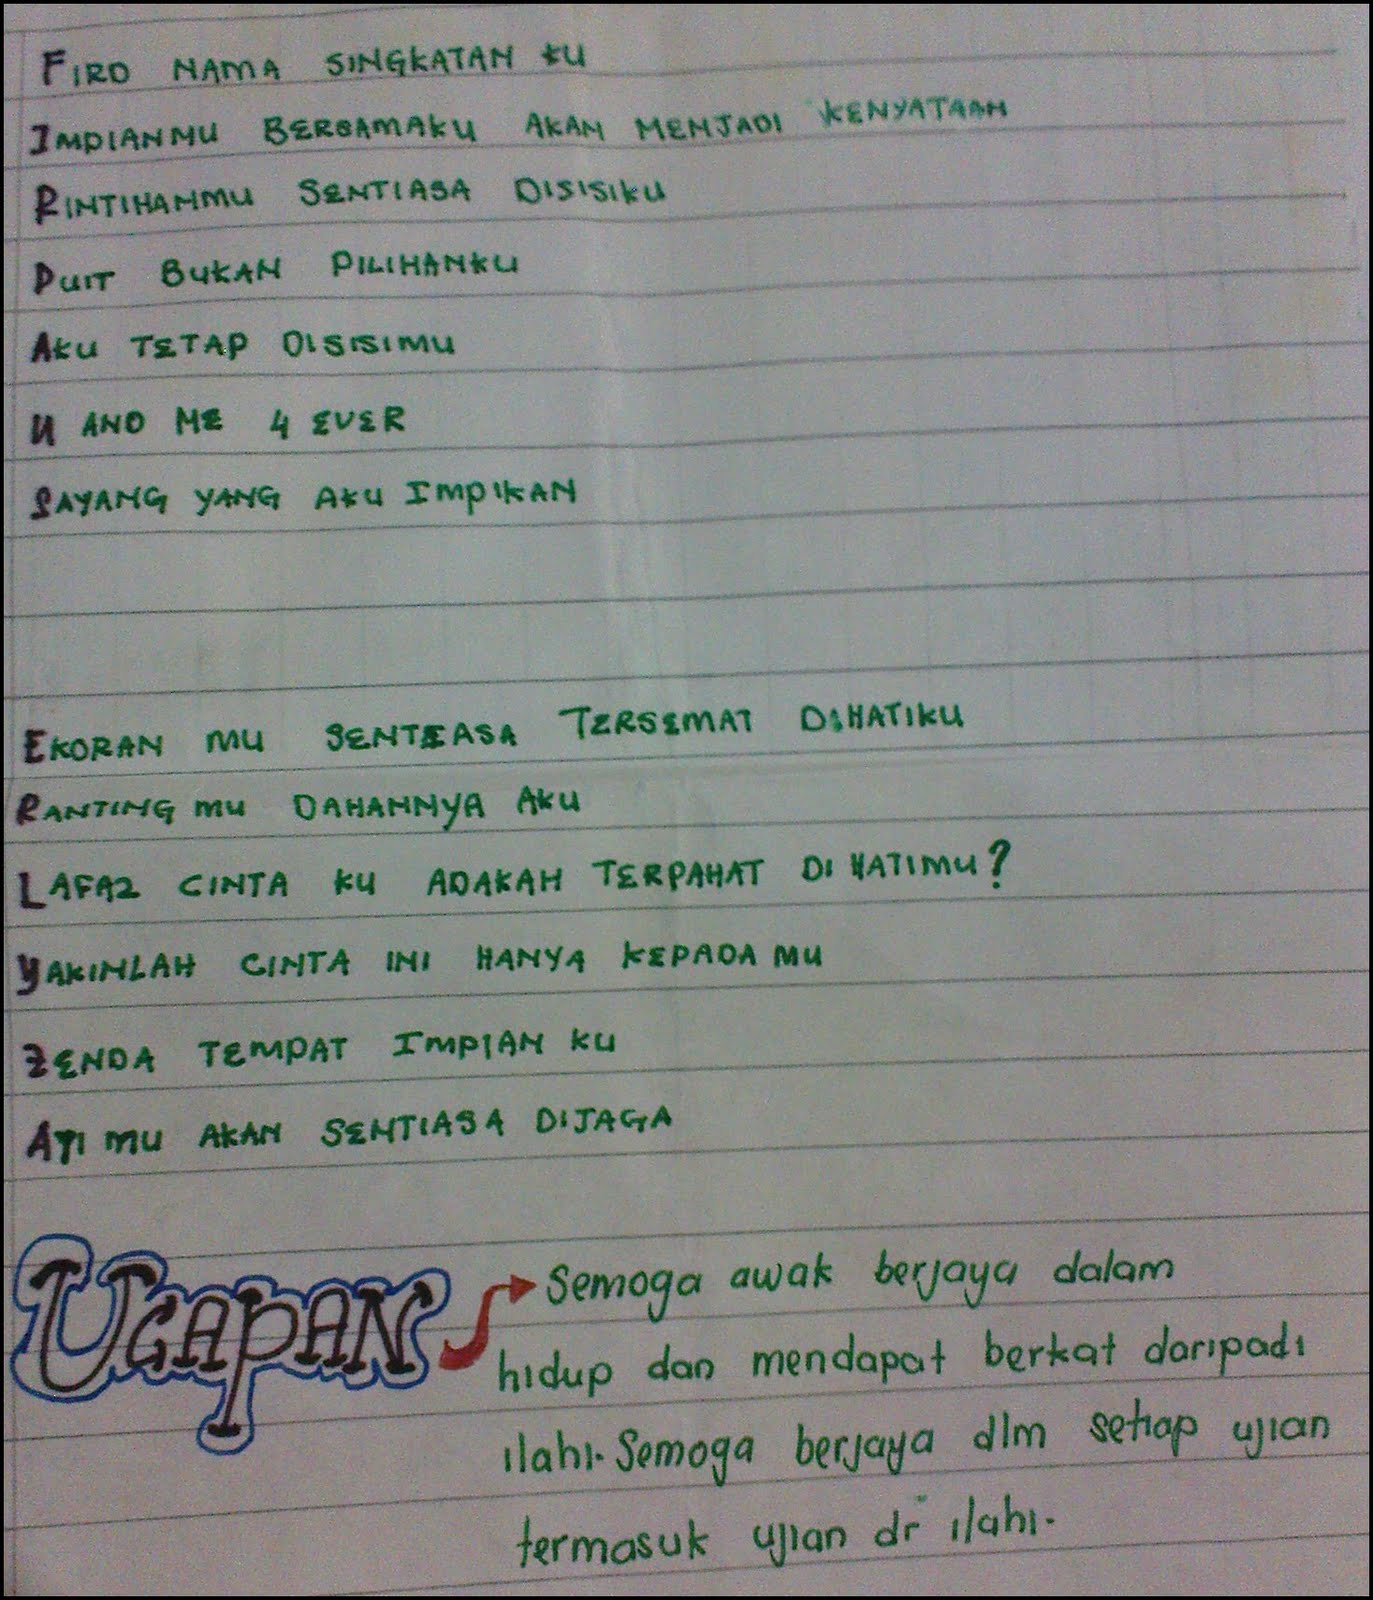 FIRD NAMA SINGKATAN KU
IMPIANMU BERSAMAKU AKAN MENJADI KENYATAAN
RINTIHANMU SENTIASA DISISIKU
DUIT BUKAN PILIHANKU
AKU TETAP DISISIMU
U AND ME 4 EVER
SAYANG YANG AKU IMPIKAN
EKORAN MU SENTIASA TERSEMAT DIHATIKU
RANTING MU DAHANNYA AKU
LAFAZ CINTA KU ADAKAH TERPAHAT DI HATIMU?
YAKINLAH CINTA INI HANYA KEPADA MU
ZENDA TEMPAT IMPIAN KU
ATI MU AKAN SENTIASA DIJAGA
UCAPAN Semoga awak berjaya dalam
hidup dan mendapat berkat daripadi
ilahi. Semoga berjaya dlm setiap ujian
termasuk ujian dr ilahi.